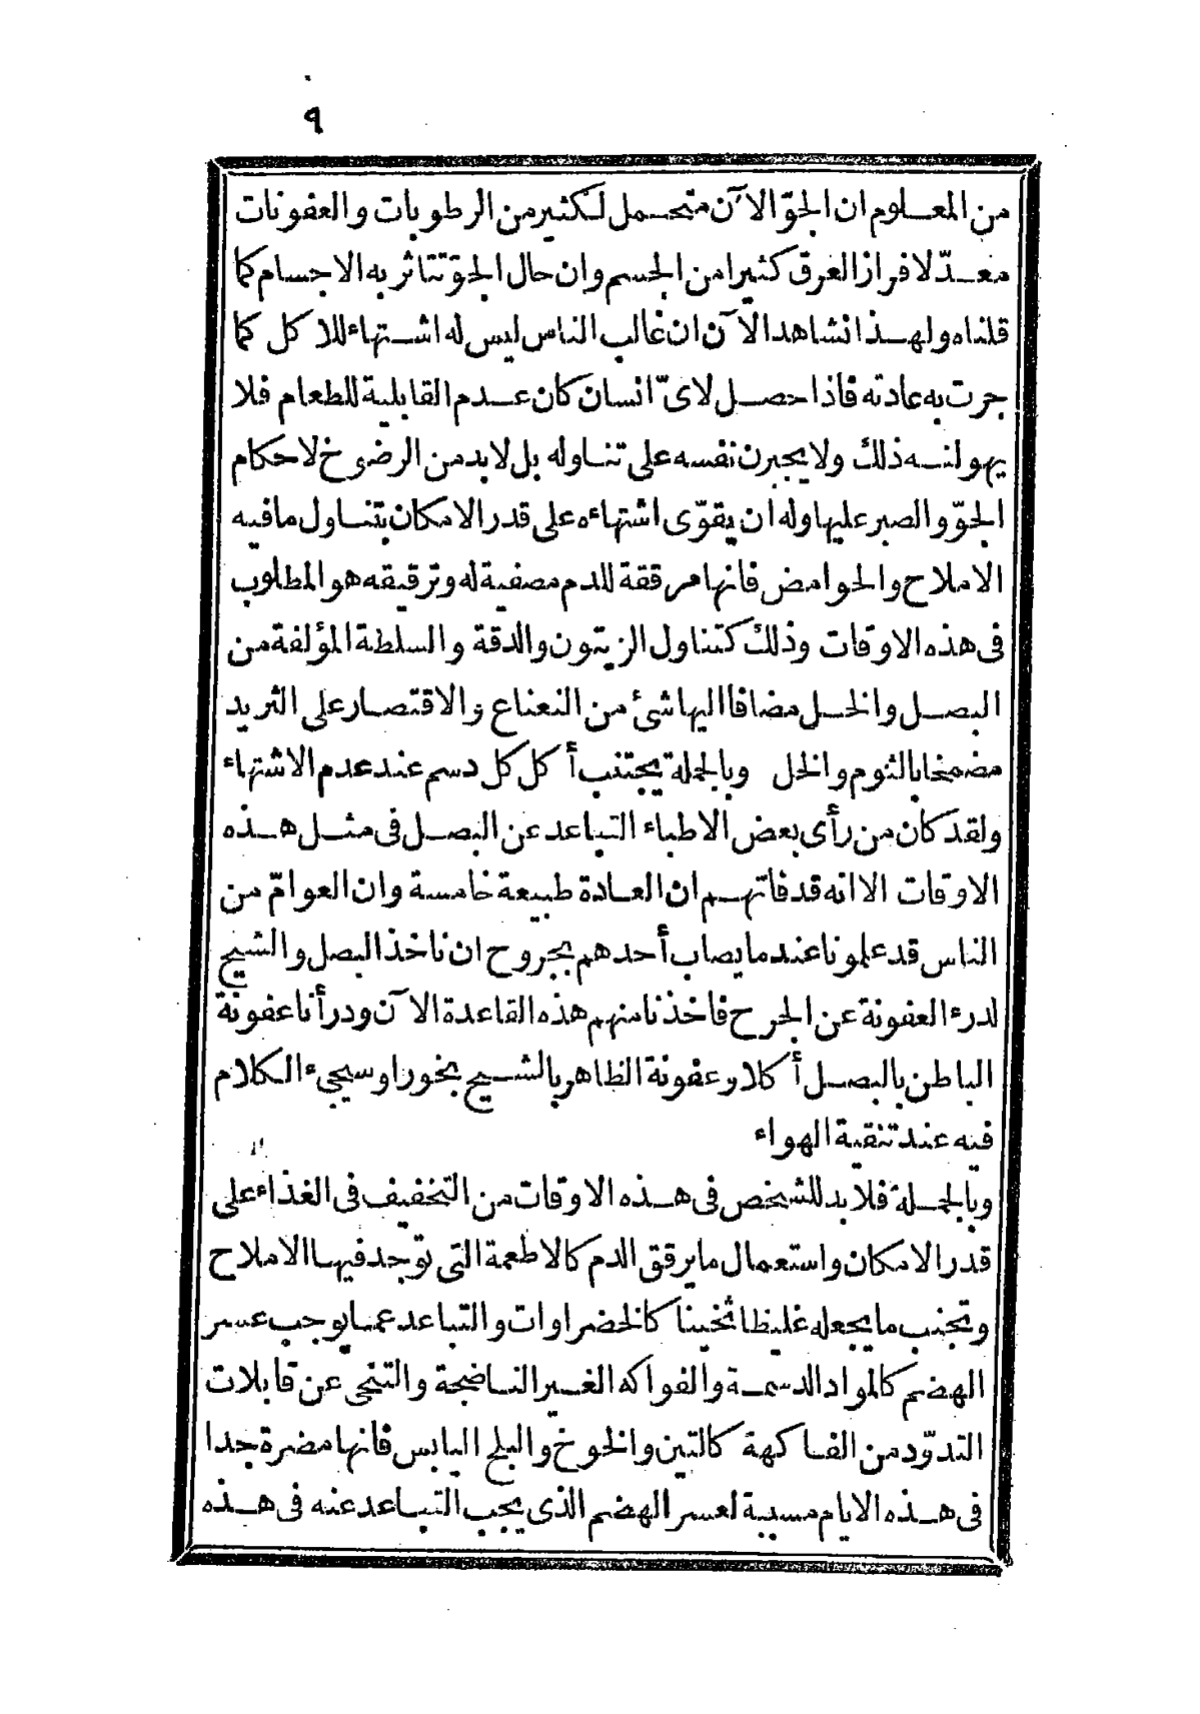 ٩
من المعلوم ان الجوّ الآن متحمل لكثير من الرطوبات والعفونات
معدّ لافراز العرق كثيرا من الجسم وان حال الجوّ تتاثر به الاجسام كما
قلناه ولهذا نشاهد الآن ان غالب الناس ليس له اشتهاء للاكل كما
جرت به عادته فاذا حصل لاىّ انسان كان عدم القابلية للطعام فلا
يهولنه ذلك ولا يجبرن نفسه على تناوله بل لابد من الرضوخ لاحكام
الجوّ والصبر عليها وله ان يقوّى اشتهاءه على قدر الامكان بتناول ما فيه
الاملاح والحوامض فانها مرققة للدم مصفية له وترقيقه هو المطلوب
فى هذه الاوقات وذلك كتناول الزيتون والدقة والسلطة المؤلفة من
البصل والخل مضافا اليها شئ من النعناع والاقتصار على الثريد
مضمخا بالثوم والخل وبالجملة يجتنب أكل كل دسم عند عدم الاشتهاء
ولقد كان من رأى بعض الاطباء التباعد عن البصل فى مثل هذه
الاوقات الا انه قد فاتهم ان العادة طبيعة خامسة وان العوامّ من
الناس قد علمونا عند ما يصاب أحدهم بجروح ان ناخذ البصل والشيح
لدرء العفونة عن الجرح فاخذنا منهم هذه القاعدة الآن ودرأنا عفونة
الباطن بالبصل أكلا وعفونة الظاهر بالشيح بخورا وسيجىء الكلام
فيه عند تنقية الهواء
وبالجملة فلا بد للشخص فى هذه الاوقات من التخفيف فى الغذاء على
قدر الامكان واستعمال ما يرقق الدم كالاطعمة التى توجد فيها الاملاح
وتجنب ما يجعله غليظا ثخينا كالخضراوات والتباعد عما يوجب عسر
الهضم كالمواد الدسمة والفواكه الغير الناضجة والتنحى عن قابلات
التدوّد من الفاكهة كالتين والخوخ والبلح اليابس فانها مضرة جدا
فى هذه الايام مسببة لعسر الهضم الذى يجب التباعد عنه فى هذه